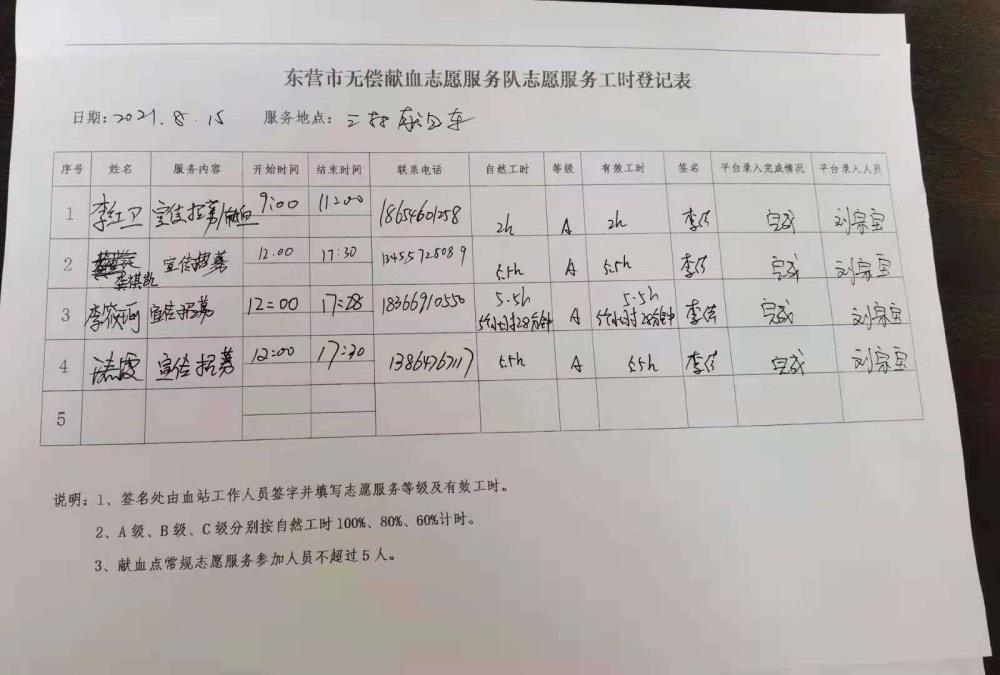 东营市无偿献血志愿服务队志愿服务工时登记表
日期:2021.8.15 服务地点:三村献血车
序号 姓名 服务内容 开始时间 结束时间 联系电话 自然工时 等级 有效工时 签名 平台录入完成情况 平台录入人员
1 李红卫 宣传招募/献血 9:00 11:00 18654601258 2h A 2h 李 完成 刘宗宝
2 龚祺凯 宣传招募 12.00 17:30 13455725089 5.5h A 5.5h 李 完成 刘宗宝
3 李筱珂 宣传招募 12:00 17:28 18366910550 5.5h 5个小时28分钟 A 5.5h 5个小时28分钟 李 完成 刘宗宝
4 宣传招募 12:00 17:30 13864767117 5.5h A 5.5h 李 完成 刘宗宝
5
说明:1、签名处由血站工作人员签字并填写志愿服务等级及有效工时。
2、A级、B级、C级分别按自然工时100%、80%、60%计时。
3、献血点常规志愿服务参加人员不超过5人。